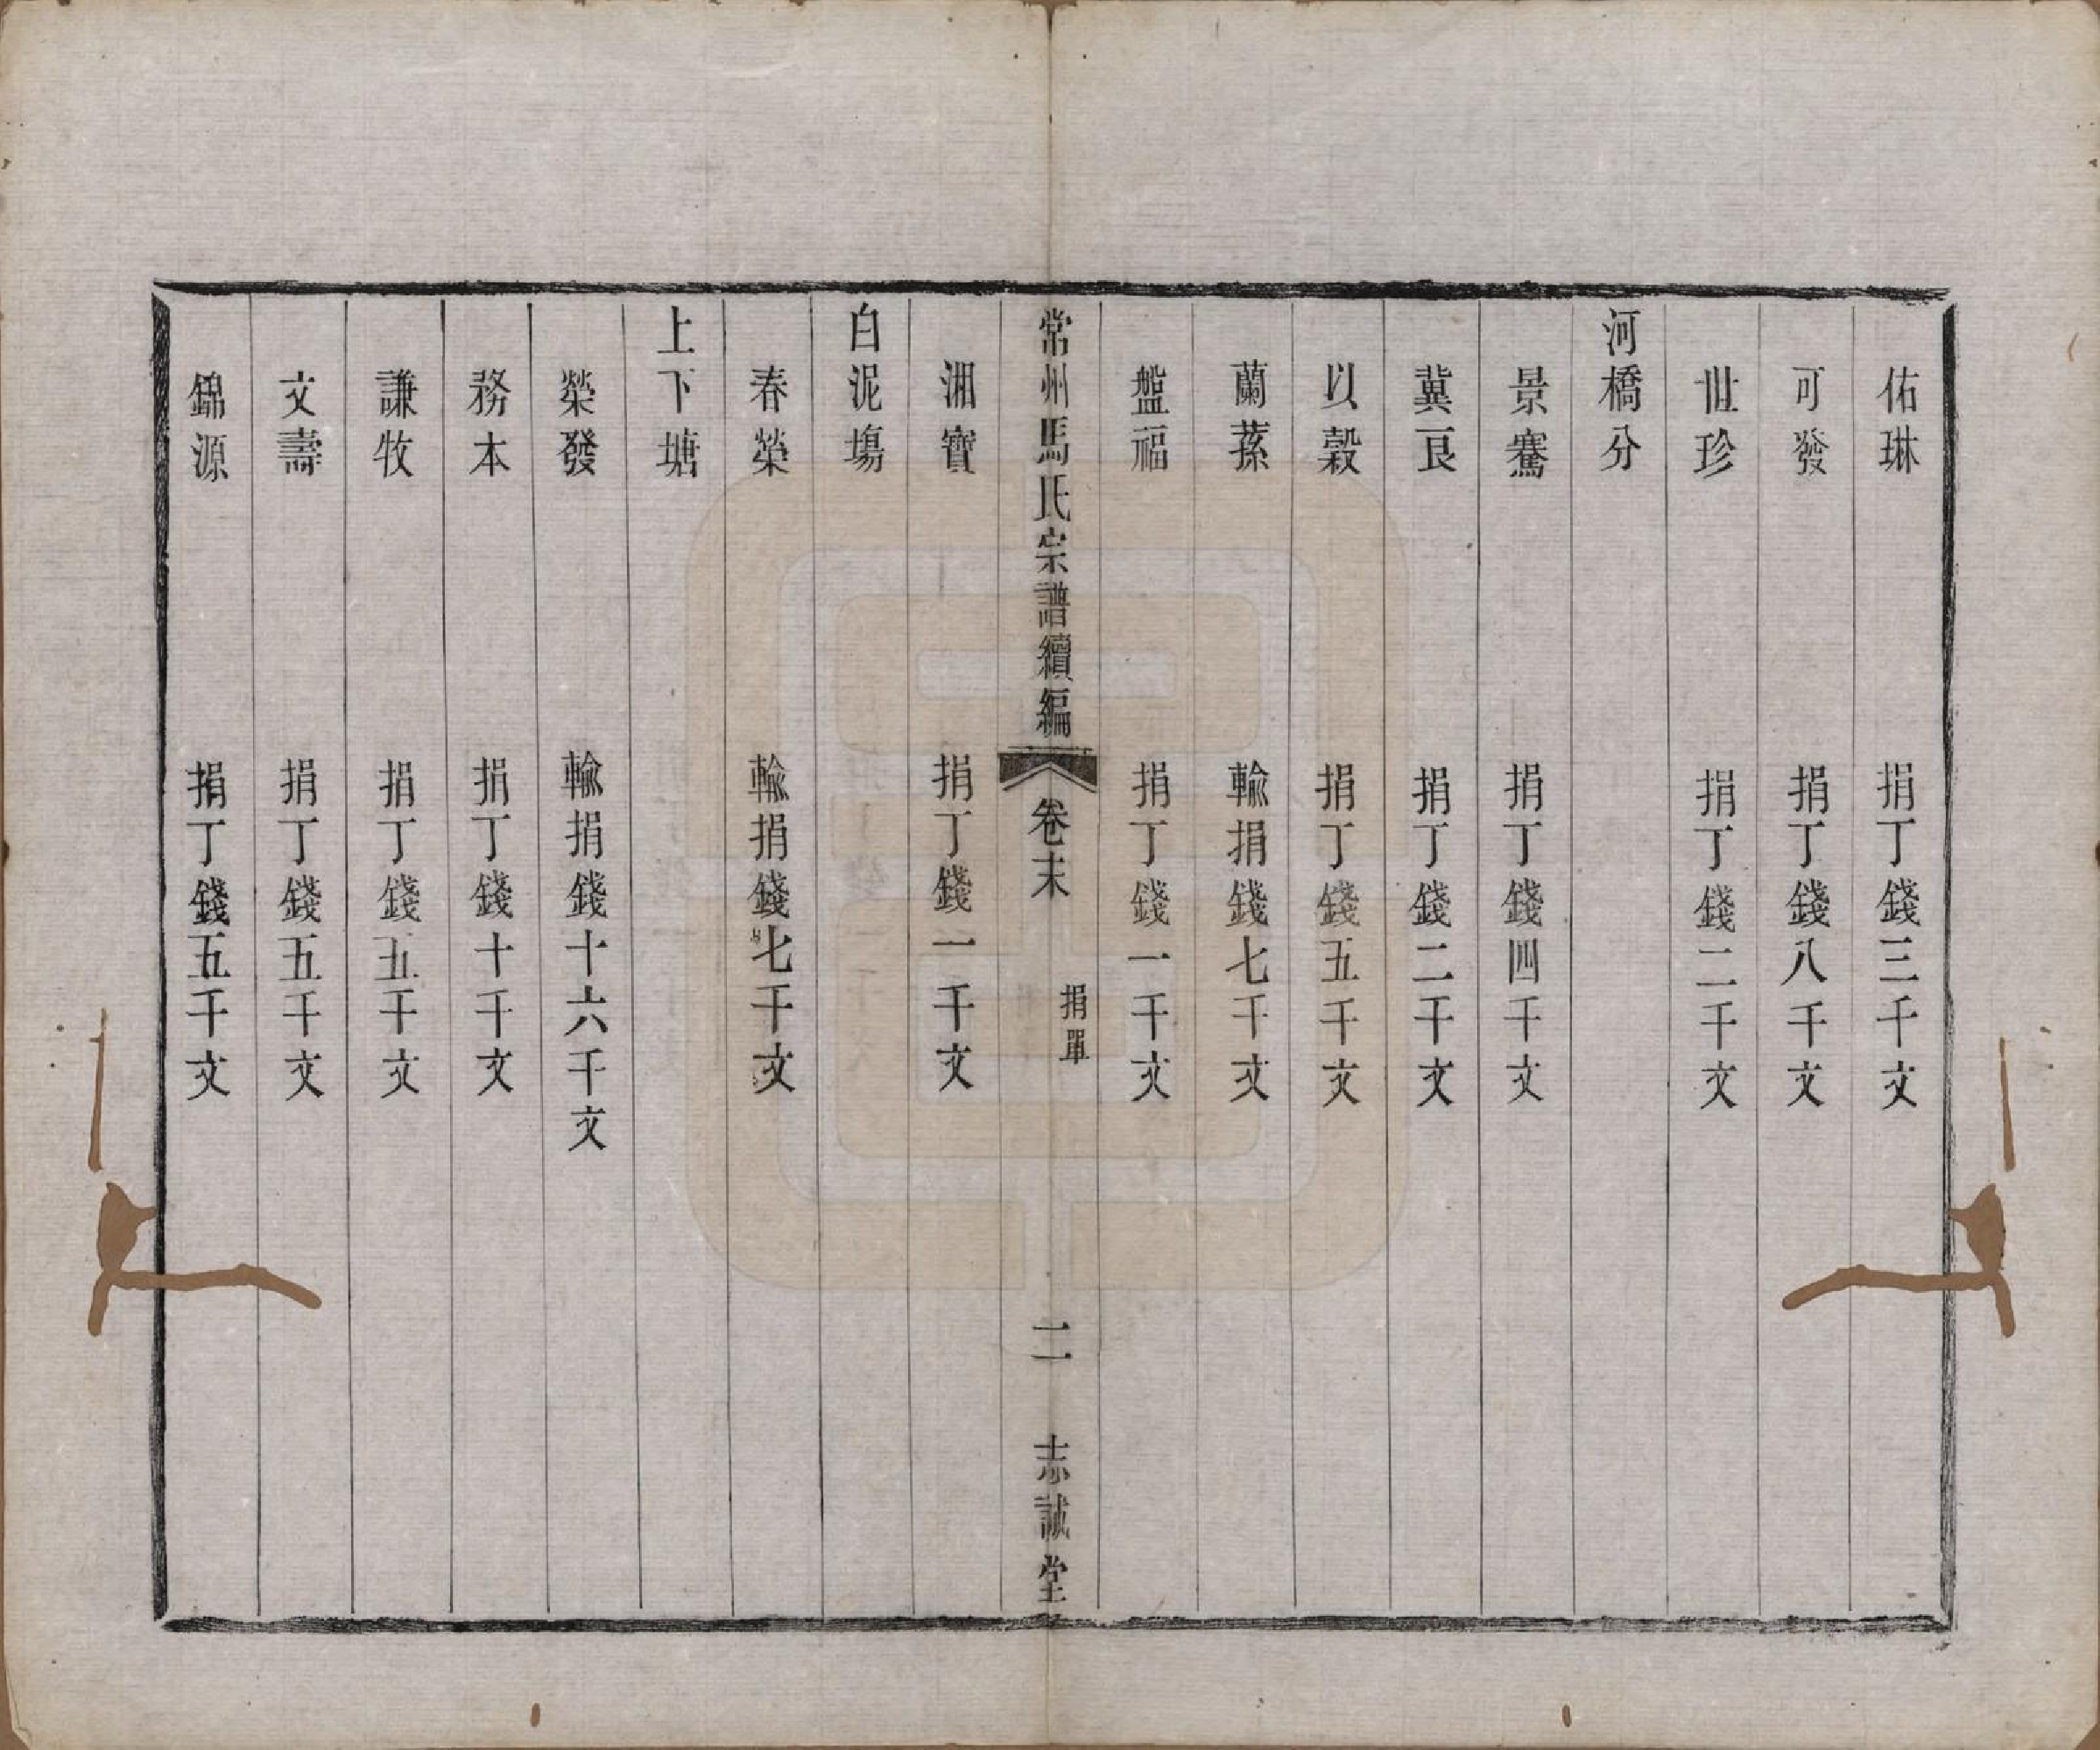 佑琳　捐丁錢三千文
可發　捐丁錢八千文
世珍　捐丁錢二千文
河橋分
景騫　捐丁錢四千文
冀良　捐丁錢二千文
以穀　捐丁錢五千文
蘭蓀　輸捐錢七千文
盤福　捐丁錢一千文
常州馬氏宗譜續編　卷末　捐單　二　志誠堂
湘寶　捐丁錢一千文
白泥塲
春榮　輸捐錢七千文
上下塘
榮發　輸捐錢十六千文
務本　捐丁錢十千文
謙牧　捐丁錢五千文
文壽　捐丁錢五千文
錦源　捐丁錢五千文